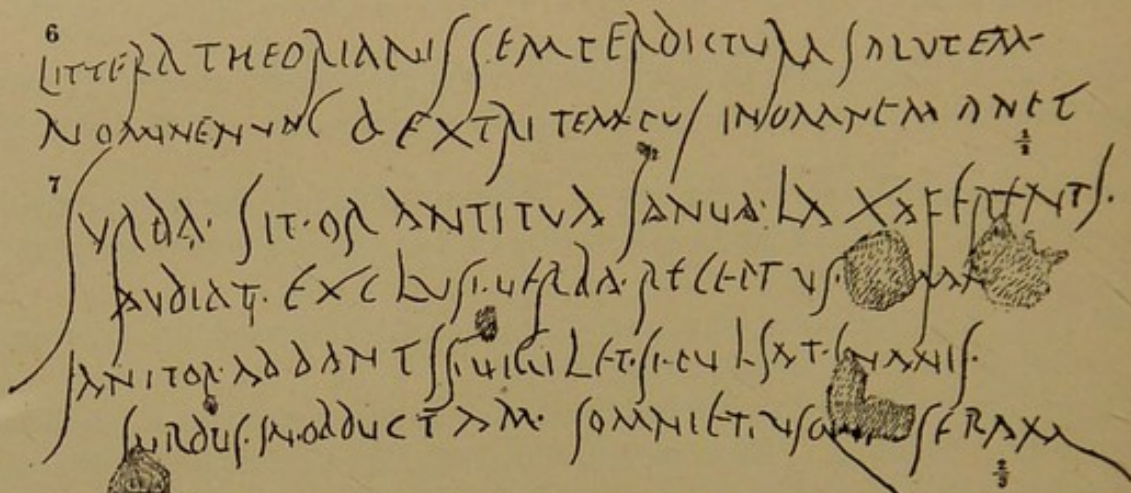 6
LITTERA THEORIANIS SEMTER DICTVRA SALVTEM
NOMINE NVNC DEXTRI TEMPVS IN OMNE MANET
1/2
7
SVRDA· SIT· ORANTI TVA IANVA· LAXA FERENTI·
AVDIAT· EXCLVSI· VERBA· RECEPTVS·
IANITOR· AD DANTIS VIGILET· SI· PVLSAT· INANIS·
SVRDVS· IN· OBDVCTAM· SOMNIET· VSQVE SERAM